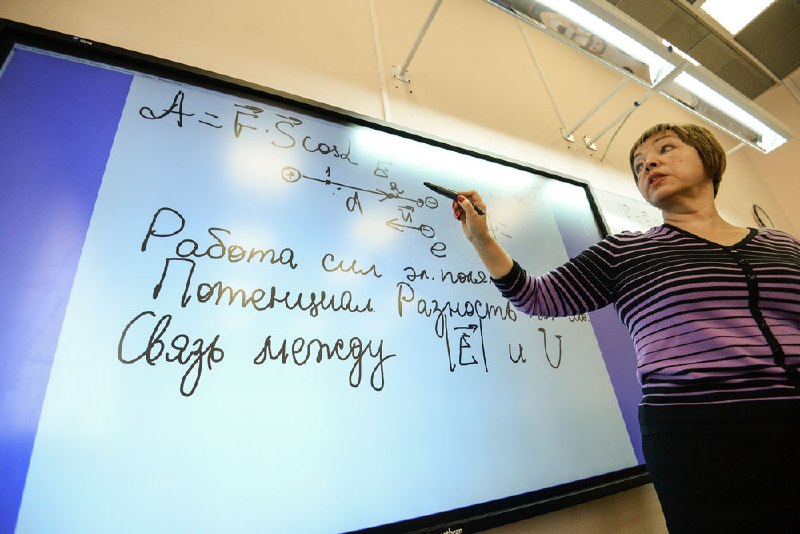 A = F⃗ · S⃗ cosα
E⃗
+ 1 2 −
A
v⃗ −
e
Работа сил эл. поля
Потенциал Разность
Связь между |E⃗| и U